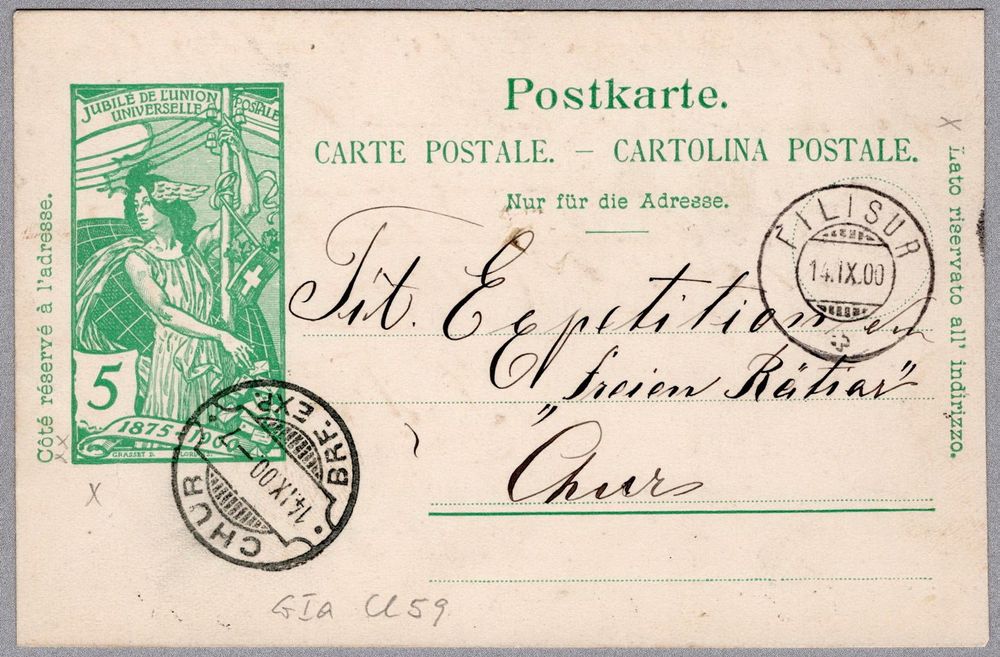 Postkarte.
CARTE POSTALE. – CARTOLINA POSTALE.
Nur für die Adresse.
JUBILÉ DE L'UNION POSTALE
UNIVERSELLE
5
1875-1900
GRASSET D.
Côté réservé à l'adresse.
Lato riservato all' indirizzo.
FILISUR
14.IX.00
CHUR
14.IX.00-7
BRF. EXP.
Tit. Expetition
„freien Rätier"
Chur
GIa Cl 59
x
x
xx